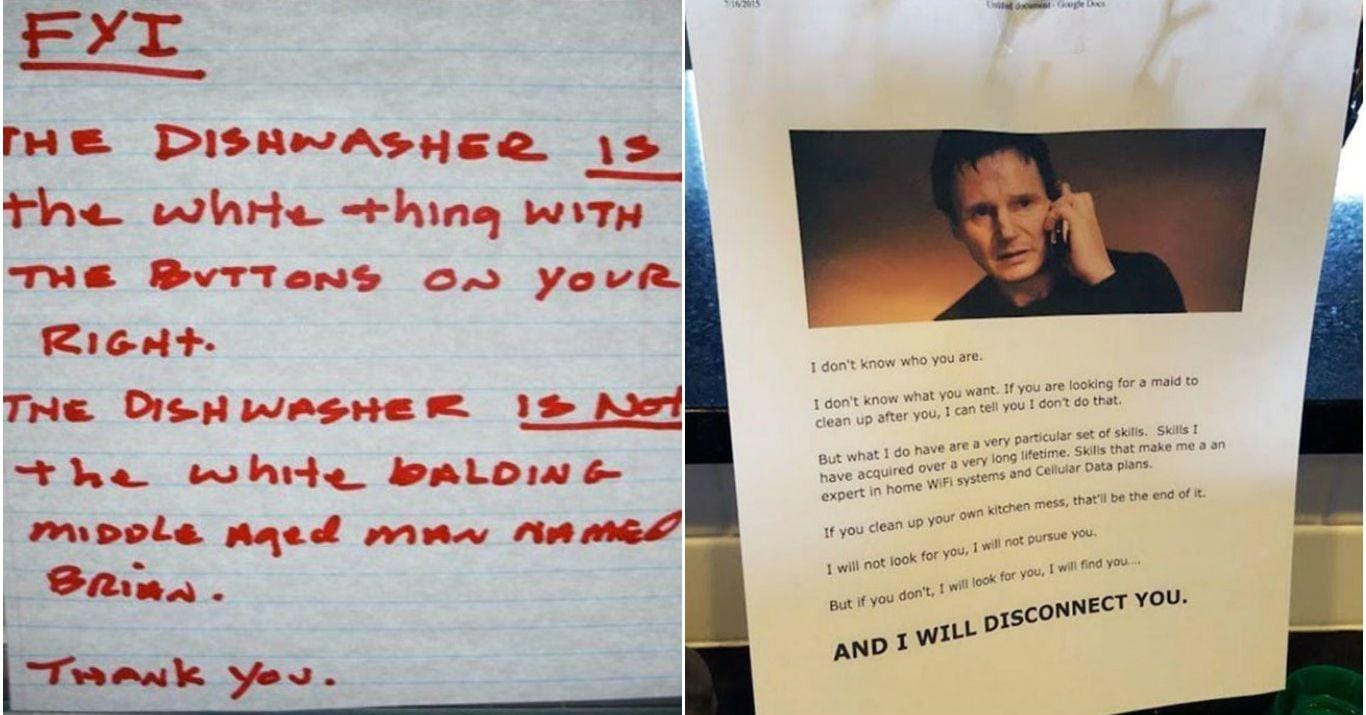 FYI
THE DISHWASHER IS
the white thing WITH
THE BUTTONS ON YOUR
RIGHT.
THE DISHWASHER IS NOT
the white BALDING
MIDDLE Aged MAN NAMED
BRIAN.
THANK YOU.
7/16/2015
Untitled document - Google Docs
I don't know who you are.
I don't know what you want. If you are looking for a maid to
clean up after you, I can tell you I don't do that.
But what I do have are a very particular set of skills. Skills I
have acquired over a very long lifetime. Skills that make me a an
expert in home WiFi systems and Cellular Data plans.
If you clean up your own kitchen mess, that'll be the end of it.
I will not look for you, I will not pursue you.
But if you don't, I will look for you, I will find you....
AND I WILL DISCONNECT YOU.